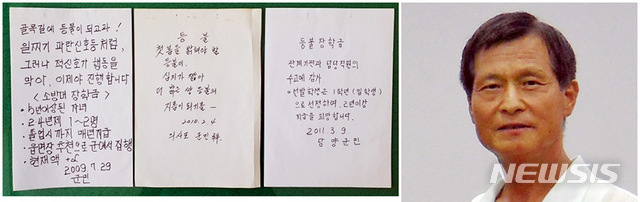 골목길에 등불이 되고파!
일찌기 파란신호등처럼,
그러나 적신호가 행동을
막아, 이제야 진행합니다
<소방대 장학금>
• 5년이상된 자녀
• 2년제 1~2명
• 졸업시까지 매년지급
• 읍면장 추천으로 군에서 집행
• 현재액 +α
2009.7.29
군민
등 불
첫봄을 밝혀야 할
등불의
심지가 짧아
더 밝은 쌍 등불의
기름이 되기를 -
2010.2.4
군민
등불장학금
관계기관과 담당직원의
수고에 감사
※선발학생은 1학년(입학생)
으로 선정하여, 2년이상
지급을 희망합니다.
2011.3.9.
담양군민
NEWSIS